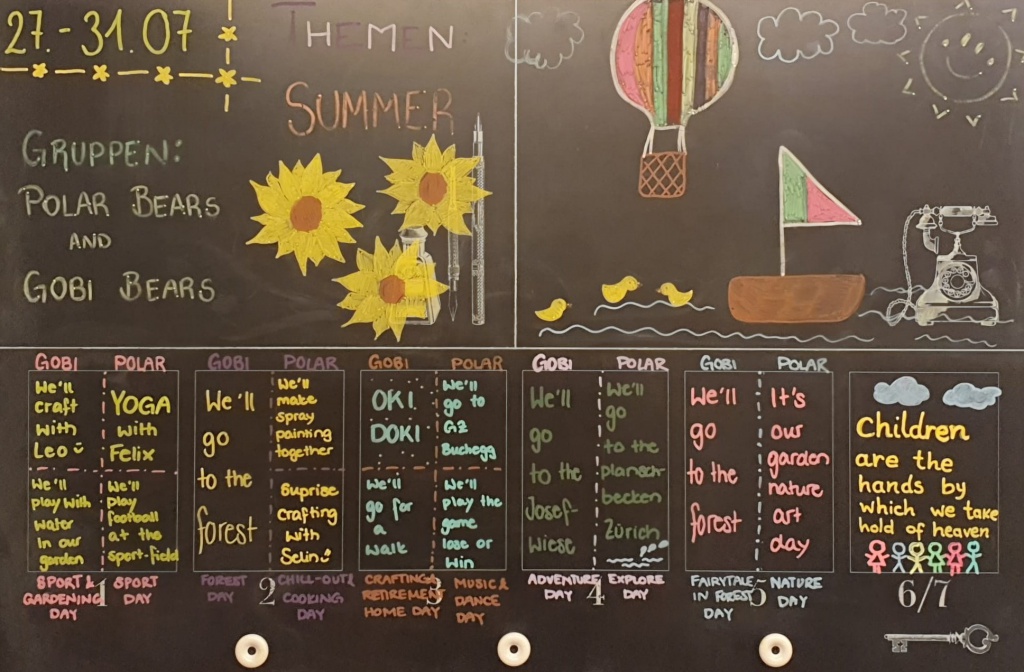 27.-31.07
THEMEN:
SUMMER
GRUPPEN:
POLAR BEARS
AND
GOBI BEARS
GOBI POLAR
We'll
craft
with
Leo
YOGA
with
Felix
We'll
play with
water
in our
garden
We'll
play
football
at the
sport-field
SPORT &
GARDENING
DAY
SPORT
DAY
1
GOBI POLAR
We'll
go
to the
forest
We'll
make
spray
painting
together
Suprise
crafting
with
Selin
FOREST
DAY
CHILL-OUT &
COOKING
DAY
2
GOBI POLAR
OKI
DOKI
We'll
go to
GZ
Buchegg
We'll
go for
a
walk
We'll
play the
game
lose or
win
CRAFTING &
RETIREMENT
HOME DAY
MUSIC &
DANCE
DAY
3
GOBI POLAR
We'll
go
to the
Josef-
wiese
We'll
go
to the
plansch
becken
Zürich
ADVENTURE
DAY
EXPLORE
DAY
4
GOBI POLAR
We'll
go
to the
forest
It's
our
garden
nature
art
day
FAIRYTALE
IN FOREST
DAY
NATURE
DAY
5
Children
are the
hands by
which we take
hold of heaven
6/7